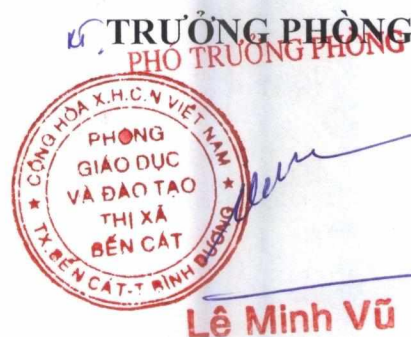 KT. TRƯỞNG PHÒNG
PHÓ TRƯỞNG PHÒNG
CỘNG HÒA X.H.C.N VIỆT NAM
PHÒNG
GIÁO DỤC
VÀ ĐÀO TẠO
THỊ XÃ
BẾN CÁT
★ TX.BẾN CÁT-T.BÌNH DƯƠNG ★
Lê Minh Vũ